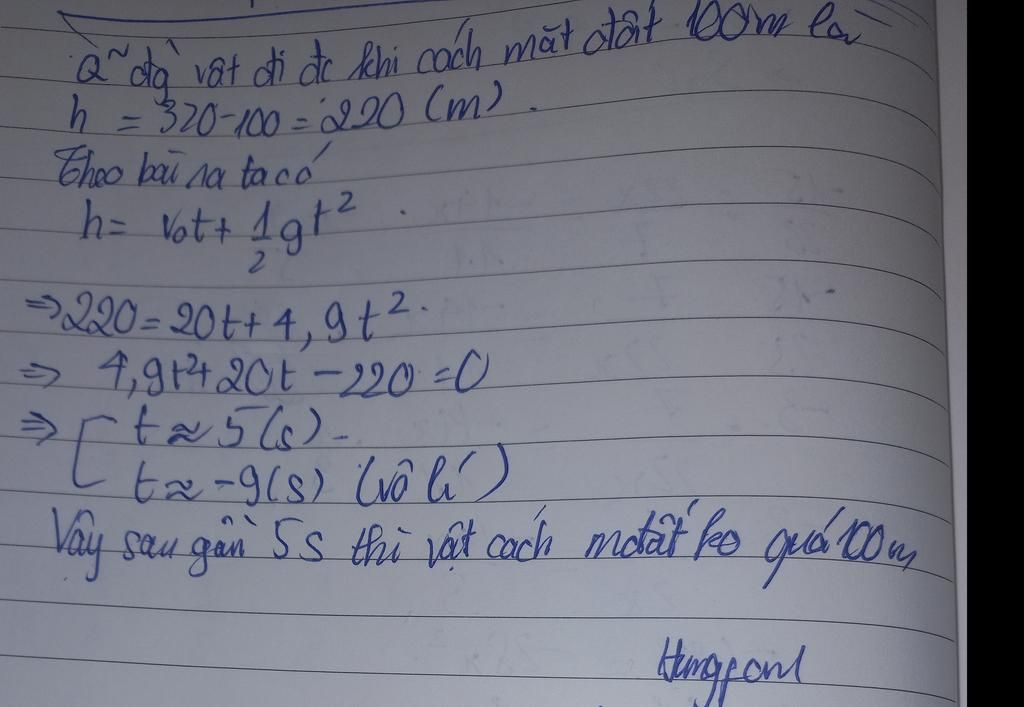 Q~ đg` vật đi đc khi cách mặt đất 100m là
h = 320-100 = 220 (m).
Theo bài ra ta có
h = v₀t + 1/2 gt²
⇒ 220 = 20t + 4,9t².
⇒ 4,9t² + 20t - 220 = 0
⇒ [ t ≈ 5 (s)
t ≈ -9 (s) (vô lí)
Vậy sau gần 5s thì vật cách mđất ko quá 100m